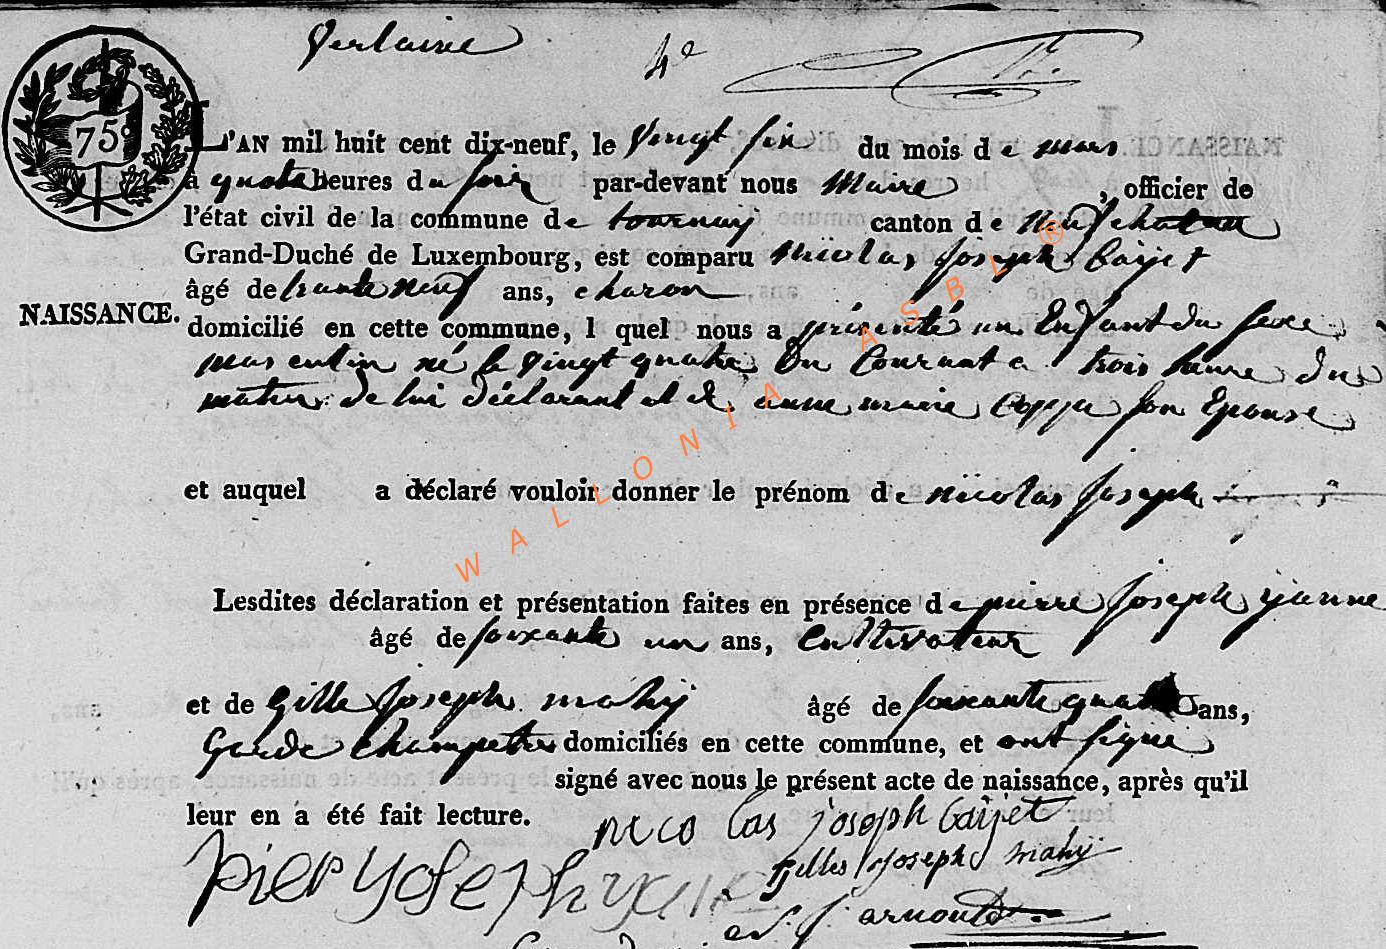 Verlaine 4e
75c
L'AN mil huit cent dix-neuf, le vingt six du mois de mars
à quatre heures du soir par-devant nous Maire , officier de
l'état civil de la commune de tournay canton de neufchateau
Grand-Duché de Luxembourg, est comparu Nicolas joseph Caijet
âgé de trente neuf ans, charon
NAISSANCE.
domicilié en cette commune, l quel nous a présenté un Enfant du sexe
masculin né le vingt quatre du Courant a trois heure du
matin de lui déclarant et de anne marie son Epouse
et auquel a déclaré vouloir donner le prénom de nicolas joseph
Lesdites déclaration et présentation faites en présence de pierre joseph
âgé de soixante un ans, cultivateur
et de Gille joseph mahij âgé de soixante quatre ans,
Garde champetre domiciliés en cette commune, et ont signé
signé avec nous le présent acte de naissance, après qu'il
leur en a été fait lecture.
nicolas joseph Caijet
pier yosephy
gilles joseph mahij
arnould
WALLONIA ASBL®